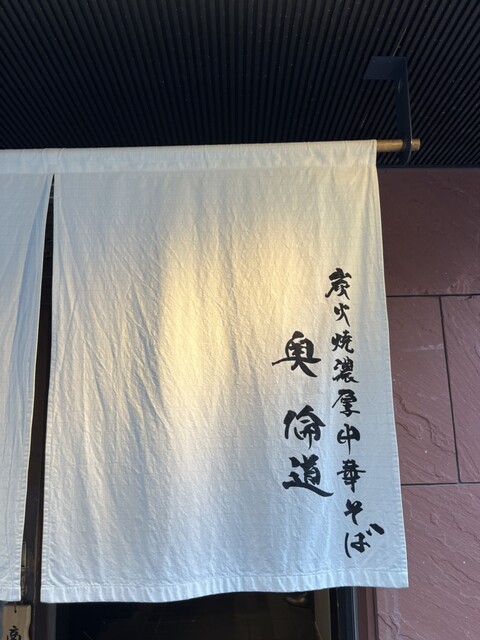 炭火焼濃厚中華そば
奥倫道
商